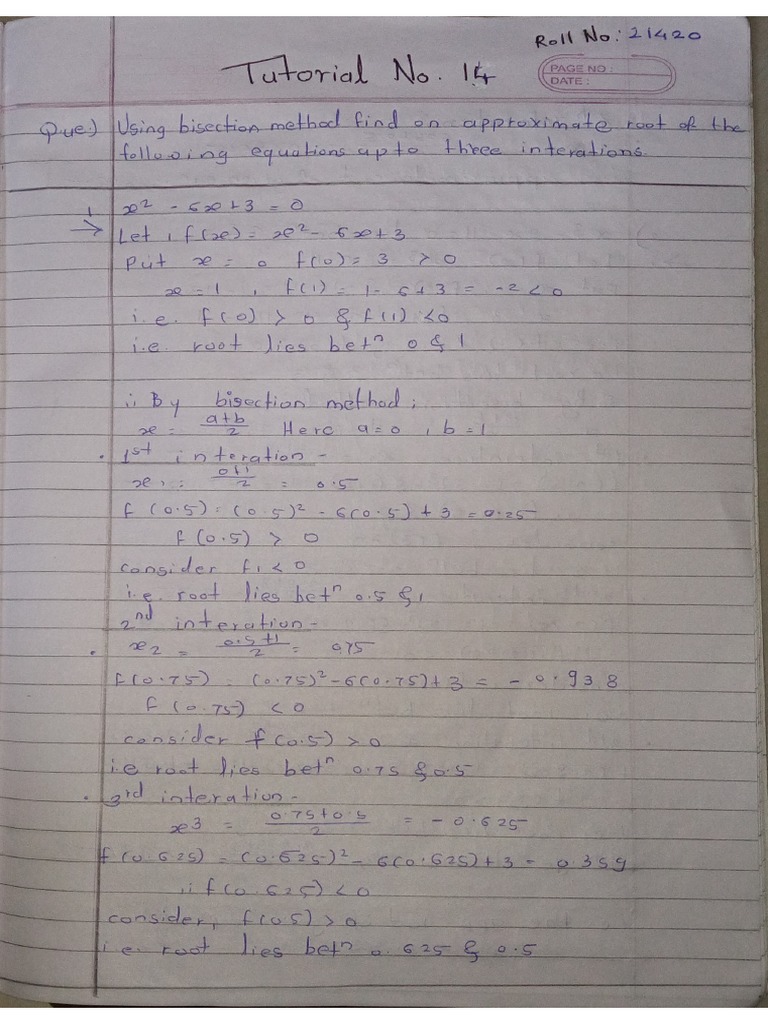 Roll No: 21420
Tutorial No. 14
PAGE NO:
DATE:
Que.) Using bisection method find on approximate root of the
following equations upto three interations.
1 x² - 6x+3 = 0
→ Let, f(x) = x² - 6x+3
Put x = 0 f(0) = 3 > 0
x = 1, f(1) = 1- 6+3 = -2 < 0
i.e. f(0) > 0 & f(1) < 0
i.e root lies betⁿ 0 & 1
∴ By bisection method;
x = a+b/2 Here a=0, b=1
. 1st interation -
x₁ = 0+1/2 = 0.5
f(0.5) = (0.5)² - 6(0.5) + 3 = 0.25
f(0.5) > 0
consider f1 < 0
i.e. root lies betⁿ 0.5 & 1
2nd interation -
. x₂ = 0.5+1/2 = 0.75
f(0.75) = (0.75)² - 6(0.75) + 3 = - 0.938
f(0.75) < 0
consider f(0.5) > 0
i.e root lies betⁿ 0.75 & 0.5
. 3rd interation -
x3 = 0.75+0.5/2 = - 0.625
f(0.625) = (0.625)² - 6(0.625) + 3 - 0.359
∴ f(0.625) < 0
consider, f(05) > 0
i.e. root lies betⁿ 0.625 & 0.5